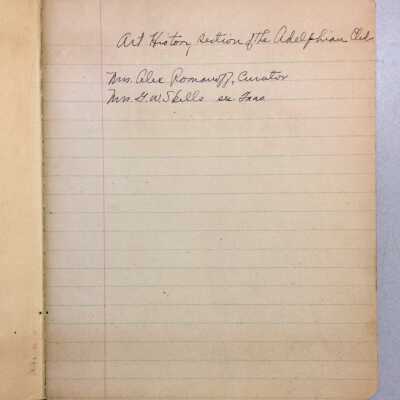 Art History section of the Adelphian Club
Mrs. Alex Romanoff, Curator
Mrs. G. W. Skills sec. Treas